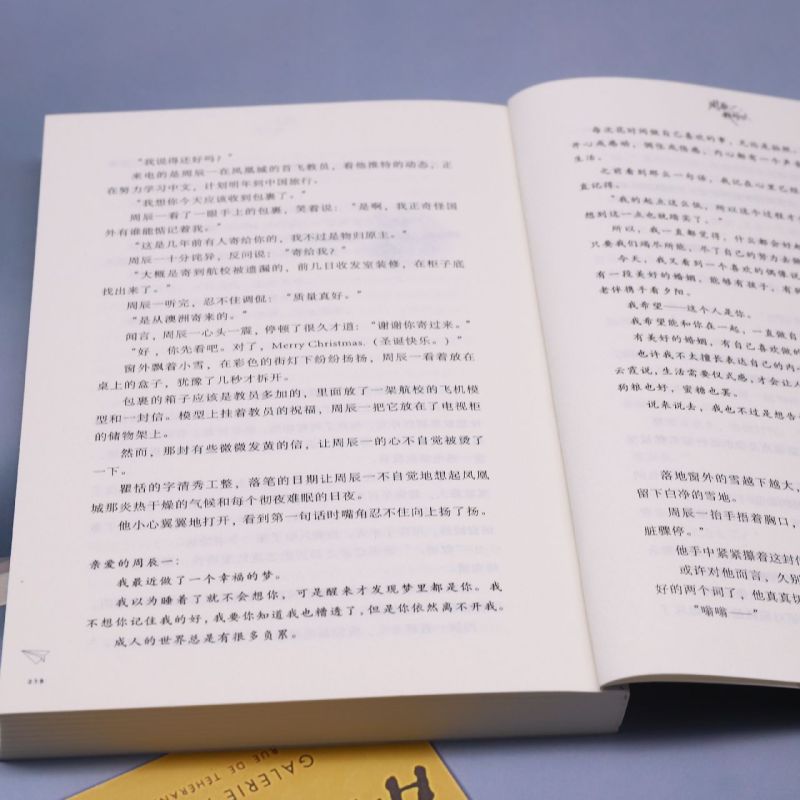 “我说得还好吗？”
来电的是周辰一在凤凰城的首飞教员，看他推特的动态，正
在努力学习中文，计划明年到中国旅行。
“我想你今天应该收到包裹了。”
周辰一看了一眼手上的包裹，笑着说：“是啊，我正奇怪国
外有谁能惦记着我。”
“这是几年前有人寄给你的，我不过是物归原主。”
周辰一十分诧异，反问说：“寄给我？”
“大概是寄到航校被遗漏的，前几日收发室装修，在柜子底
找出来了。”
周辰一听完，忍不住调侃：“质量真好。”
“是从澳洲寄来的。”
闻言，周辰一心头一震，停顿了很久才道：“谢谢你寄过来。”
“好，你先看吧。对了，Merry Christmas.（圣诞快乐。）”
窗外飘着小雪，在彩色的街灯下纷纷扬扬，周辰一看着放在
桌上的盒子，犹豫了几秒才拆开。
包裹的箱子应该是教员多加的，里面放了一架航校的飞机模
型和一封信。模型上挂着教员的祝福，周辰一把它放在了电视柜
的储物架上。
然而，那封有些微微发黄的信，让周辰一的心不自觉被烫了
一下。
瞿恬的字清秀工整，落笔的日期让周辰一不自觉地想起凤凰
城那炎热干燥的气候和每个彻夜难眠的日夜。
他小心翼翼地打开，看到第一句话时嘴角忍不住向上扬了扬。
亲爱的周辰一：
我最近做了一个幸福的梦。
我以为睡着了就不会想你，可是醒来才发现梦里都是你。我
不想你记住我的好，我要你知道我也糟透了，但是你依然离不开我。
成人的世界总是有很多负累。
218
每次花时间做自己喜欢的事，无论是拍照、
开心或感动，惆怅或伤感，内心都有一个声音
生活。
之前看到那么一句话，我记在心里已经
直记得。
“我的起点这么低，所以这个过程才
想到这一点也就踏实了。”
所以，我一直都觉得，什么都会好起
只要我们竭尽所能，尽了自己的努力去做
今天，我又看到一个喜欢的偶像说
有一段美好的婚姻，能够有孩子，有
老伴携手看夕阳。
我希望——这个人是你。
我希望能和你在一起，一直做自
有美好的婚姻，有自己喜欢做的
也许我不太擅长表达自己的内
云霞说，生活需要仪式感，才会让人
狗粮也好，蜜糖也罢。
说来说去，我也不过是想告
落地窗外的雪越下越大，
留下白净的雪地。
周辰一抬手捂着胸口，
脏骤停。”
他手中紧紧攥着这封信
或许对他而言，久别
好的两个词了，他真真切
“嗡嗡——”
GALERIE
RUE DE TEHERAN